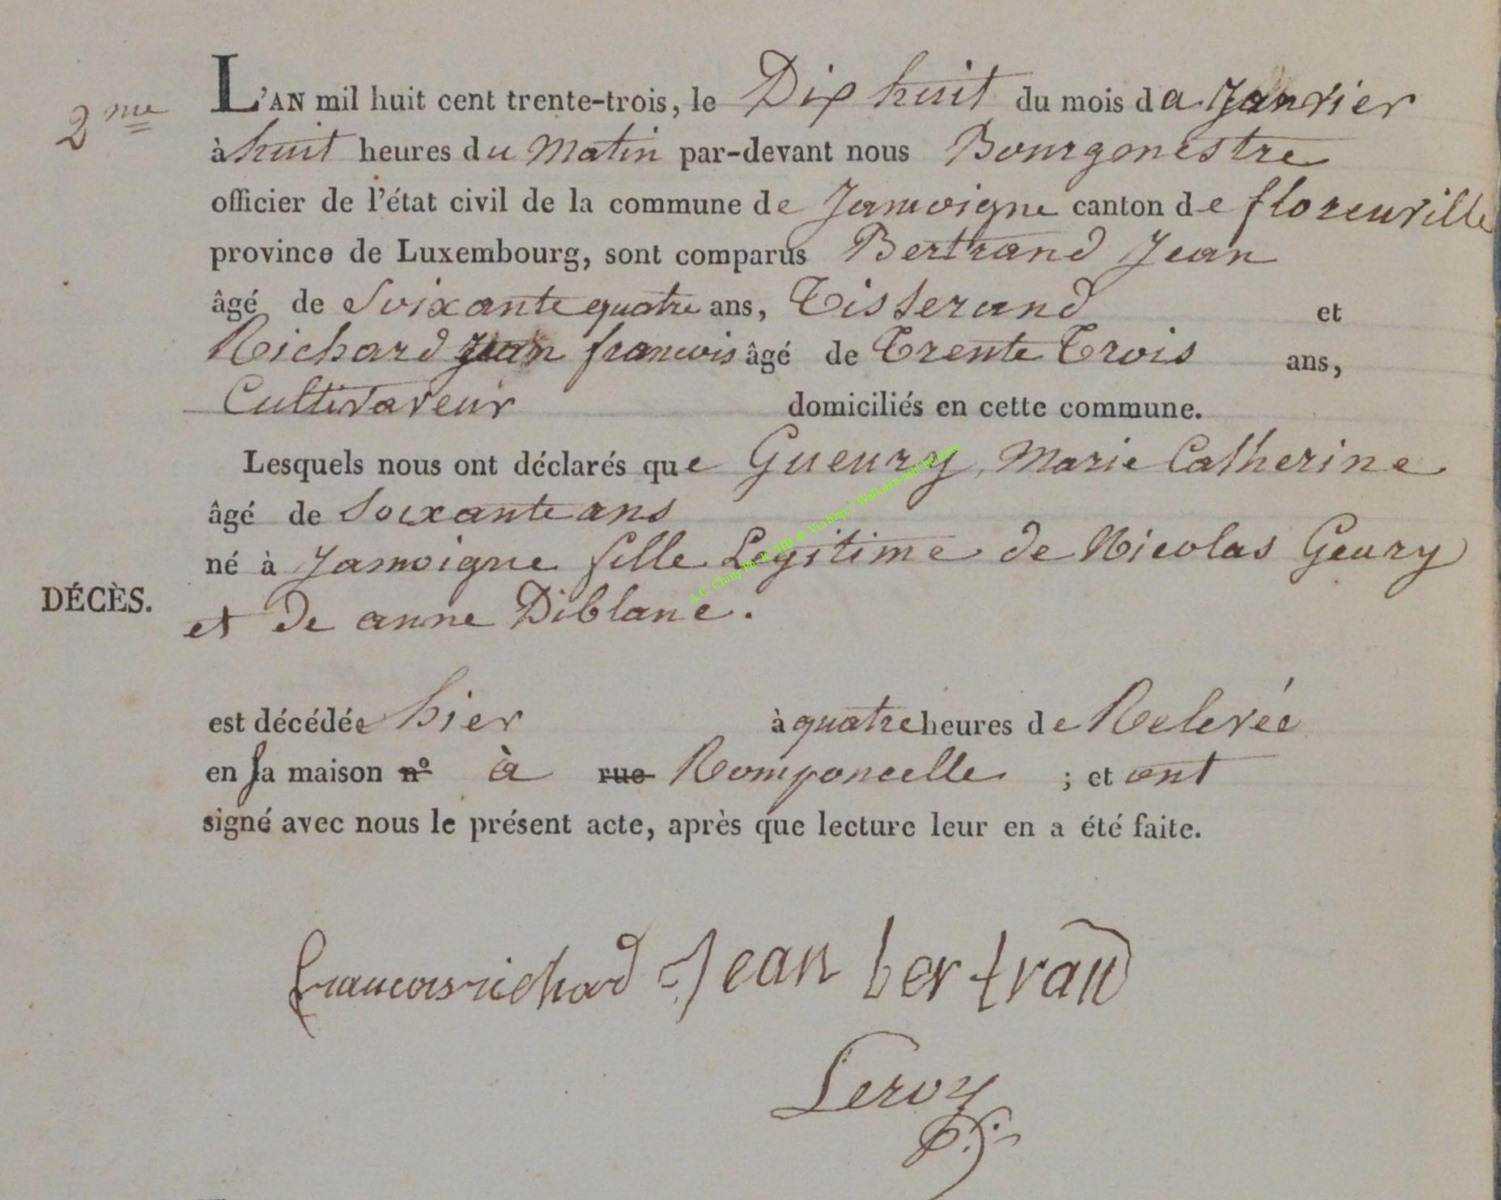 2me
L'AN mil huit cent trente-trois, le Dix huit du mois da Janvier
à huit heures du Matin par-devant nous Bourgmestre
officier de l'état civil de la commune de Jamoigne canton de florenville
province de Luxembourg, sont comparus Bertrand Jean
âgé de Soixante quatre ans, Tisserand et
Richard Jean francois âgé de Trente Trois ans,
Cultivateur domiciliés en cette commune.
Lesquels nous ont déclarés que Gueury, Marie Catherine
âgé de Soixante ans
né à Jamoigne fille Legitime de Nicolas Geury
DÉCÈS.
et de anne Diblanc.
est décédée hier à quatre heures de Relevée
en sa maison n° à rue Romponcelle ; et ont
signé avec nous le présent acte, après que lecture leur en a été faite.
francois richard Jean bertrand
Leroy